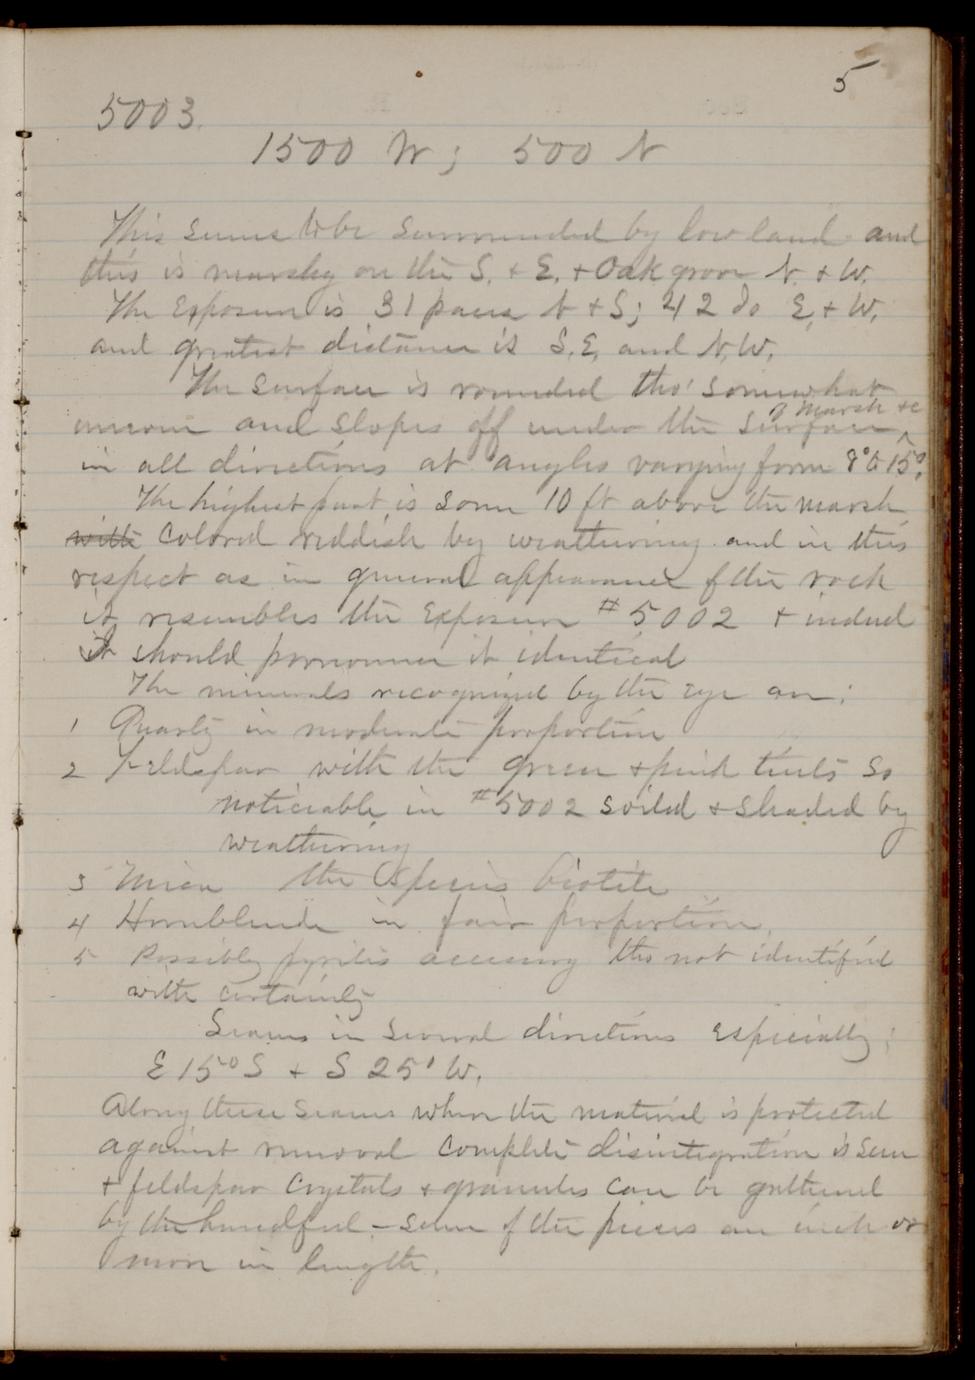 5
5003.
1500 W; 500 N
This seems to be surrounded by low land and
this is marshy on the S. + E. + Oak grove N. + W.
The Exposure is 31 paces N + S; 42 do E, + W.
and greatest distance is S.E. and N.W.
The surface is rounded tho' somewhat
uneven and slopes off under the surface ^ of marsh &c
in all directions at angles varying form 8° to 15°.
The highest part is some 10 ft above the marsh
with colored reddish by weathering and in this
respect as in general appearance of the rock
it resembles the Exposure #5002 + indeed
I should pronounce it identical
The minerals recognized by the eye are:
1 Quartz in moderate proportion
2 Feldspar with the green + pink tints so
noticeable in #5002 soiled + shaded by
weathering
3 Mica the species biotite
4 Hornblende in fair proportion.
5 Possibly pyrites accessory tho not identified
with certainty
Seams in several directions especially;
E 15° S + S 25° W.
Along these seams where the material is protected
against removal complete disintegration is seen
+ feldspar crystals + granules can be gathered
by the handful - some of the pieces an inch or
more in length.